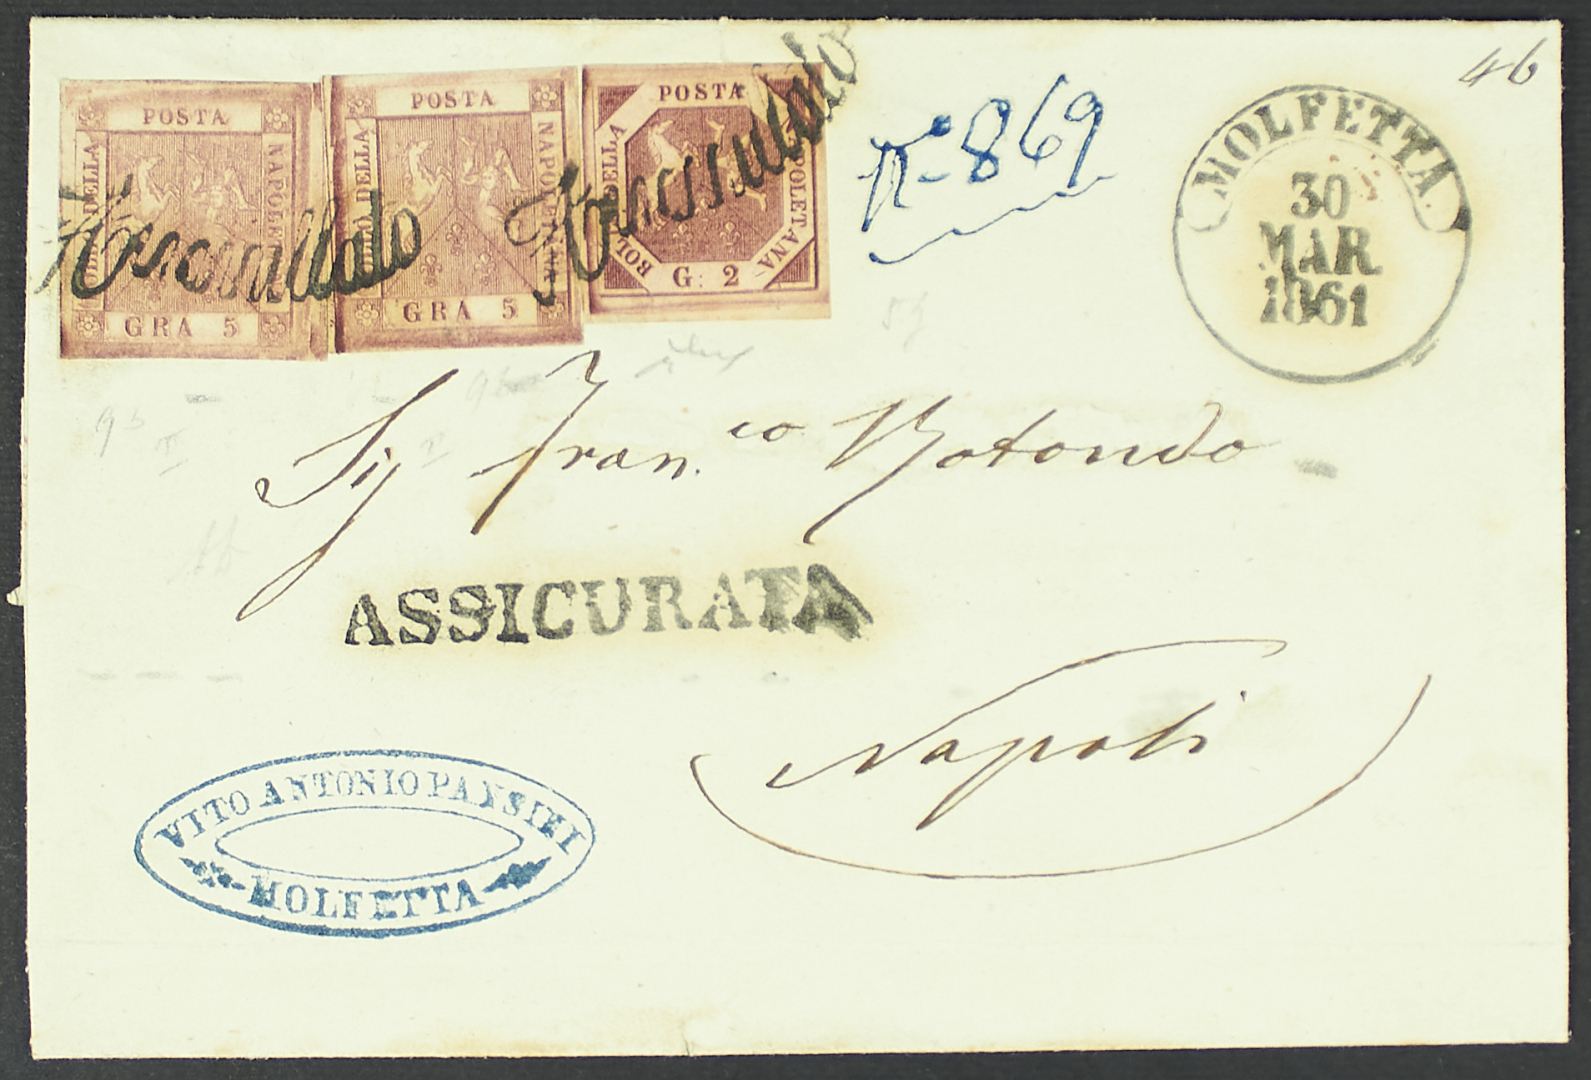 POSTA
BOLLO DELLA
NAPOLETANA
GRA 5
POSTA
BOLLO DELLA
NAPOLETANA
GRA 5
POSTA
BOLLO DELLA
NAPOLETANA
G: 2
Annullato
Annullato
n.º 869
46
MOLFETTA
30
MAR
1861
Sig Fran.co Rotondo
ASSICURATA
Napoli
VITO ANTONIO PANSINI
MOLFETTA